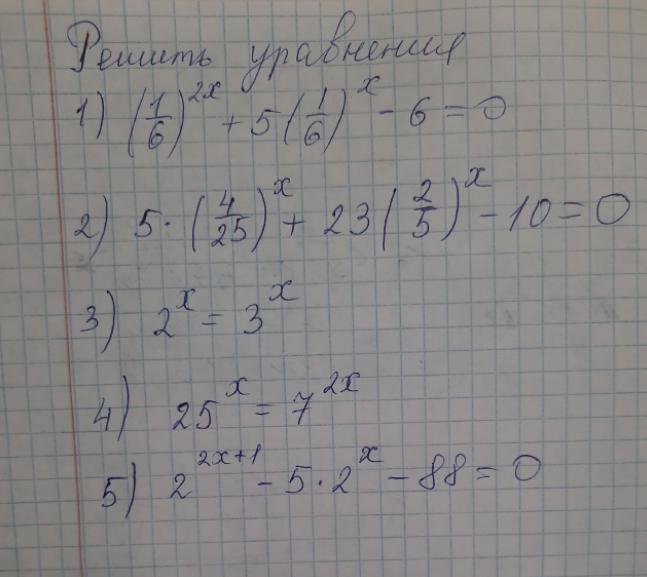 Решить уравнения
1) (1/6)^2x + 5(1/6)^x - 6 = 0
2) 5·(4/25)^x + 23(2/5)^x - 10 = 0
3) 2^x = 3^x
4) 25^x = 7^2x
5) 2^2x+1 - 5·2^x - 88 = 0